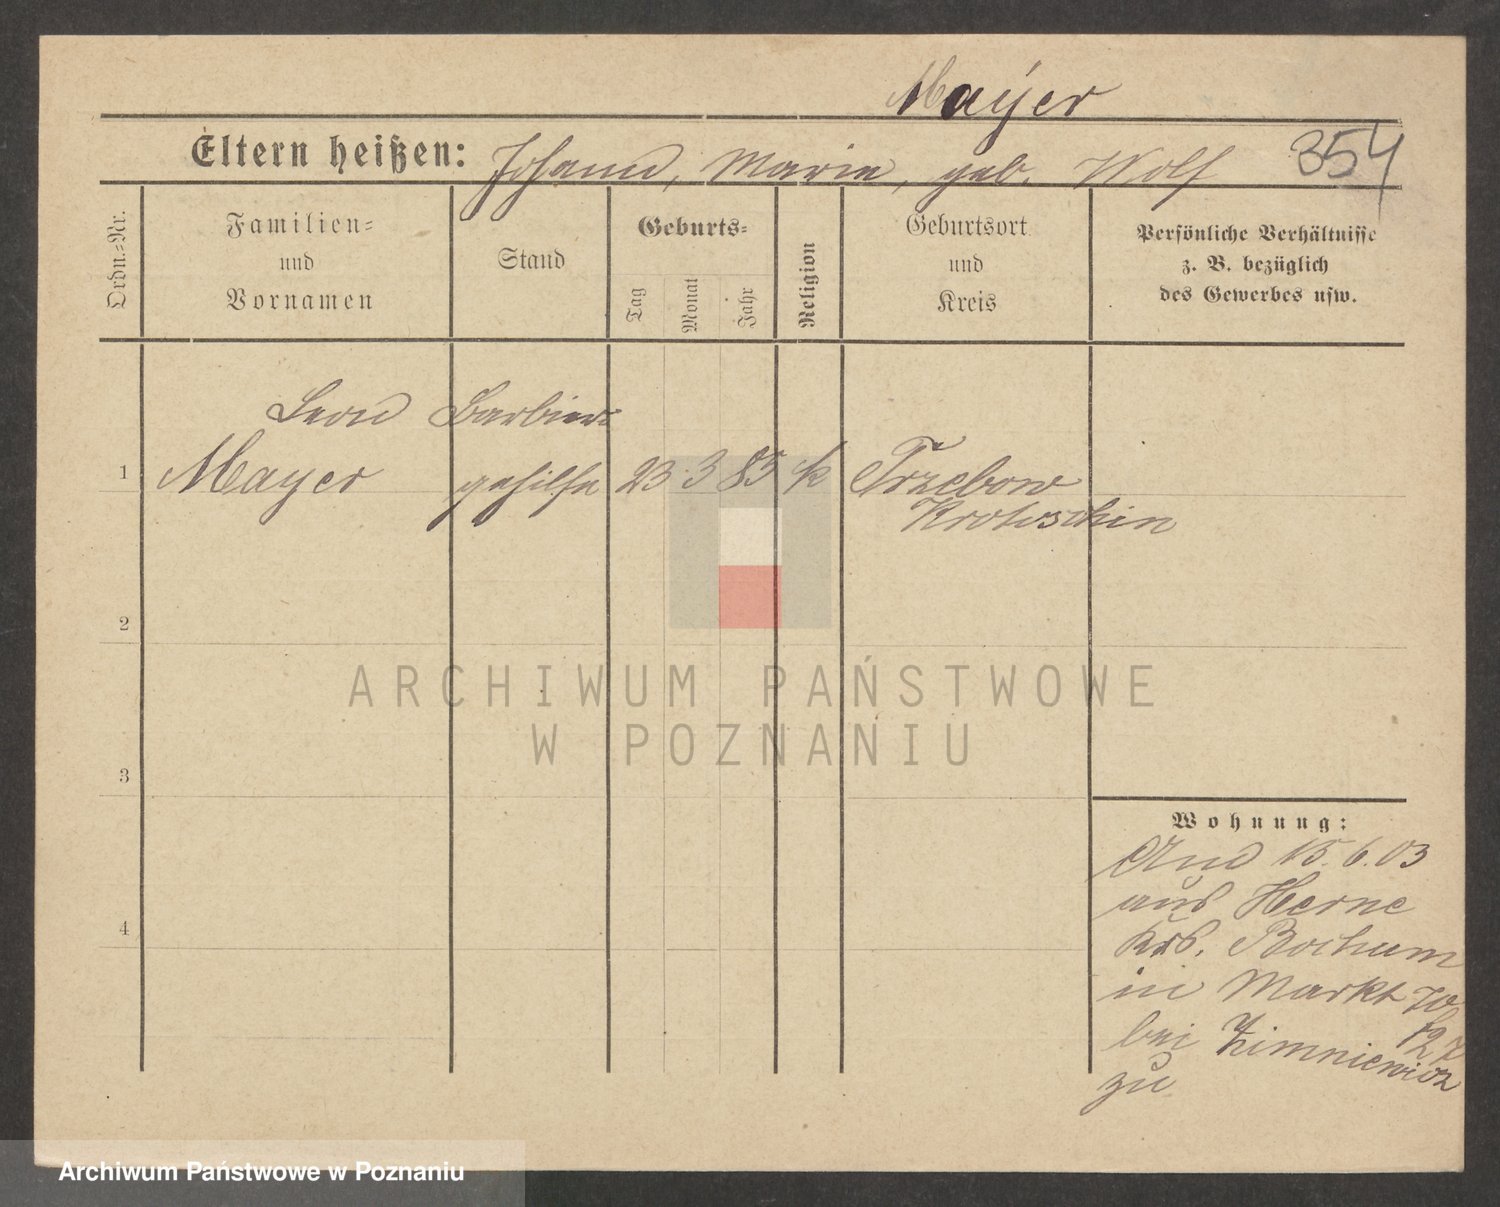 Mayer
Eltern heißen: Johann, Marie, geb. Wolf 354
Ordn.=Nr.
Familien=
und
Vornamen
Stand
Geburts=
Tag
Monat
Jahr
Religion
Geburtsort
und
Kreis
Persönliche Verhältnisse
z. B. bezüglich
des Gewerbes usw.
Leon Barbier=
1 Mayer gehilfe 23 3 85 k Trzebow
Krotoschin
2
3
4
Wohnung:
15. 6. 03
aus Herne
Krs. Bochum
in Markt
bei Zimniewicz
zu
ARCHIWUM PAŃSTWOWE
W POZNANIU
Archiwum Państwowe w Poznaniu